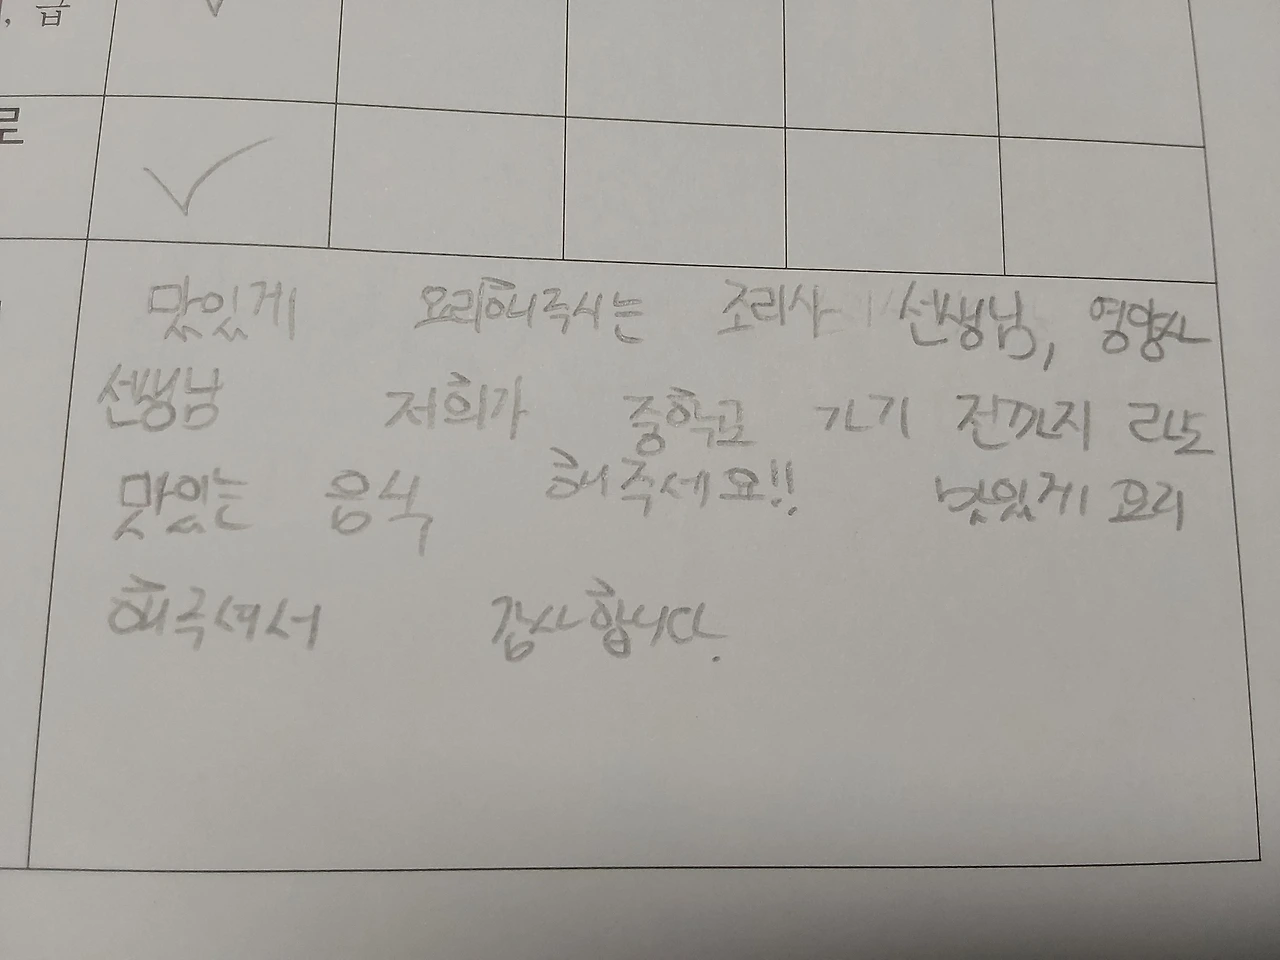 , 급
로
맛있게 요리해주시는 조리사 선생님, 영양사
선생님 저희가 중학교 가기 전까지 라도
맛있는 음식 해주세요!! 맛있게 요리
해주셔서 감사합니다.